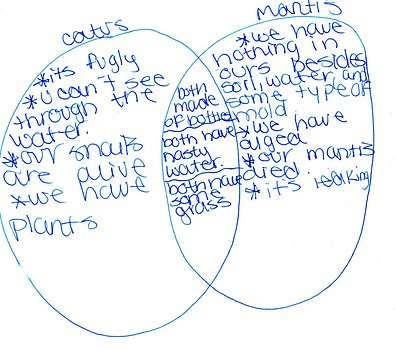 catus
*its fugly
*u can't see
through the
water.
*our snails
are alive
*we have
plants
both
made
of bottles
both have
nasty
water.
both have
some
grass
mantis
*we have
nothing in
ours besides
soil, water, and
some type of
mold
*we have
alged
*our mantis
died.
*it's